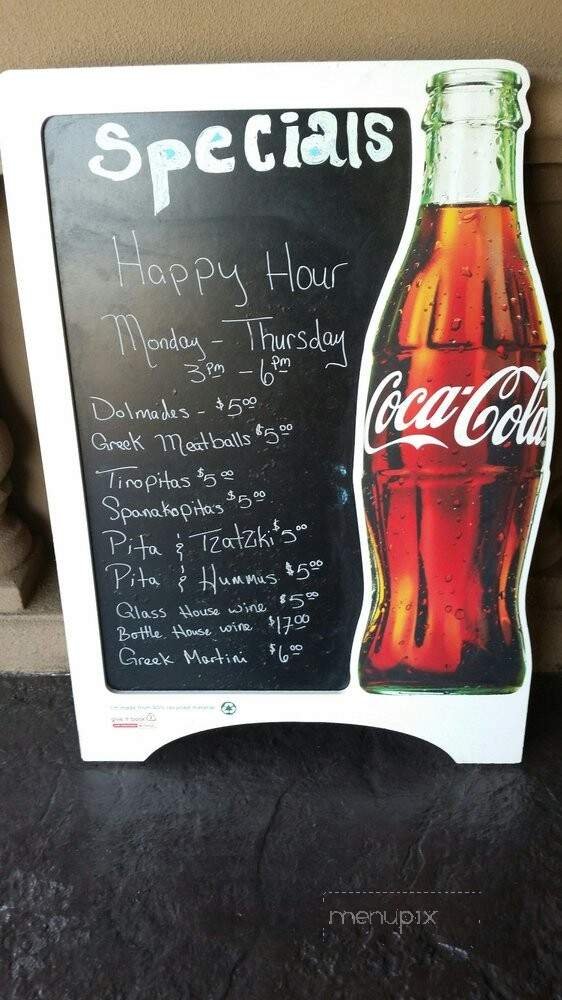 Specials
Happy Hour
Monday - Thursday
3pm - 6pm
Dolmades - $5.00
Greek Meatballs $5.00
Tiropitas $5.00
Spanakopitas $5.00
Pita & Tzatziki $5.00
Pita & Hummus $5.00
Glass House wine $5.00
Bottle House wine $17.00
Greek Martini $6.00
Coca-Cola
I'm made from 50% recycled material
give it back
menupix